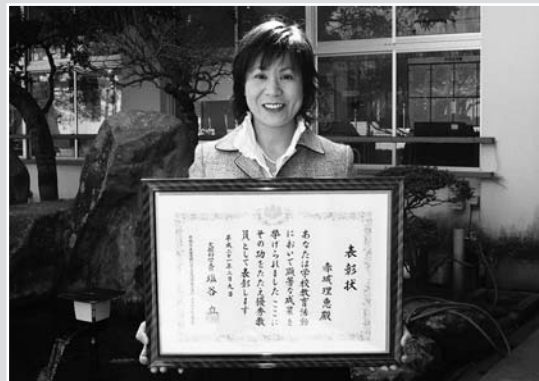 表彰状
赤城理恵殿
あなたは学校教育活動
において顕著な成果を
挙げられました ここに
その功をたたえ優秀教
員として表彰します
平成二十一年二月九日
文部科学大臣 塩谷 立